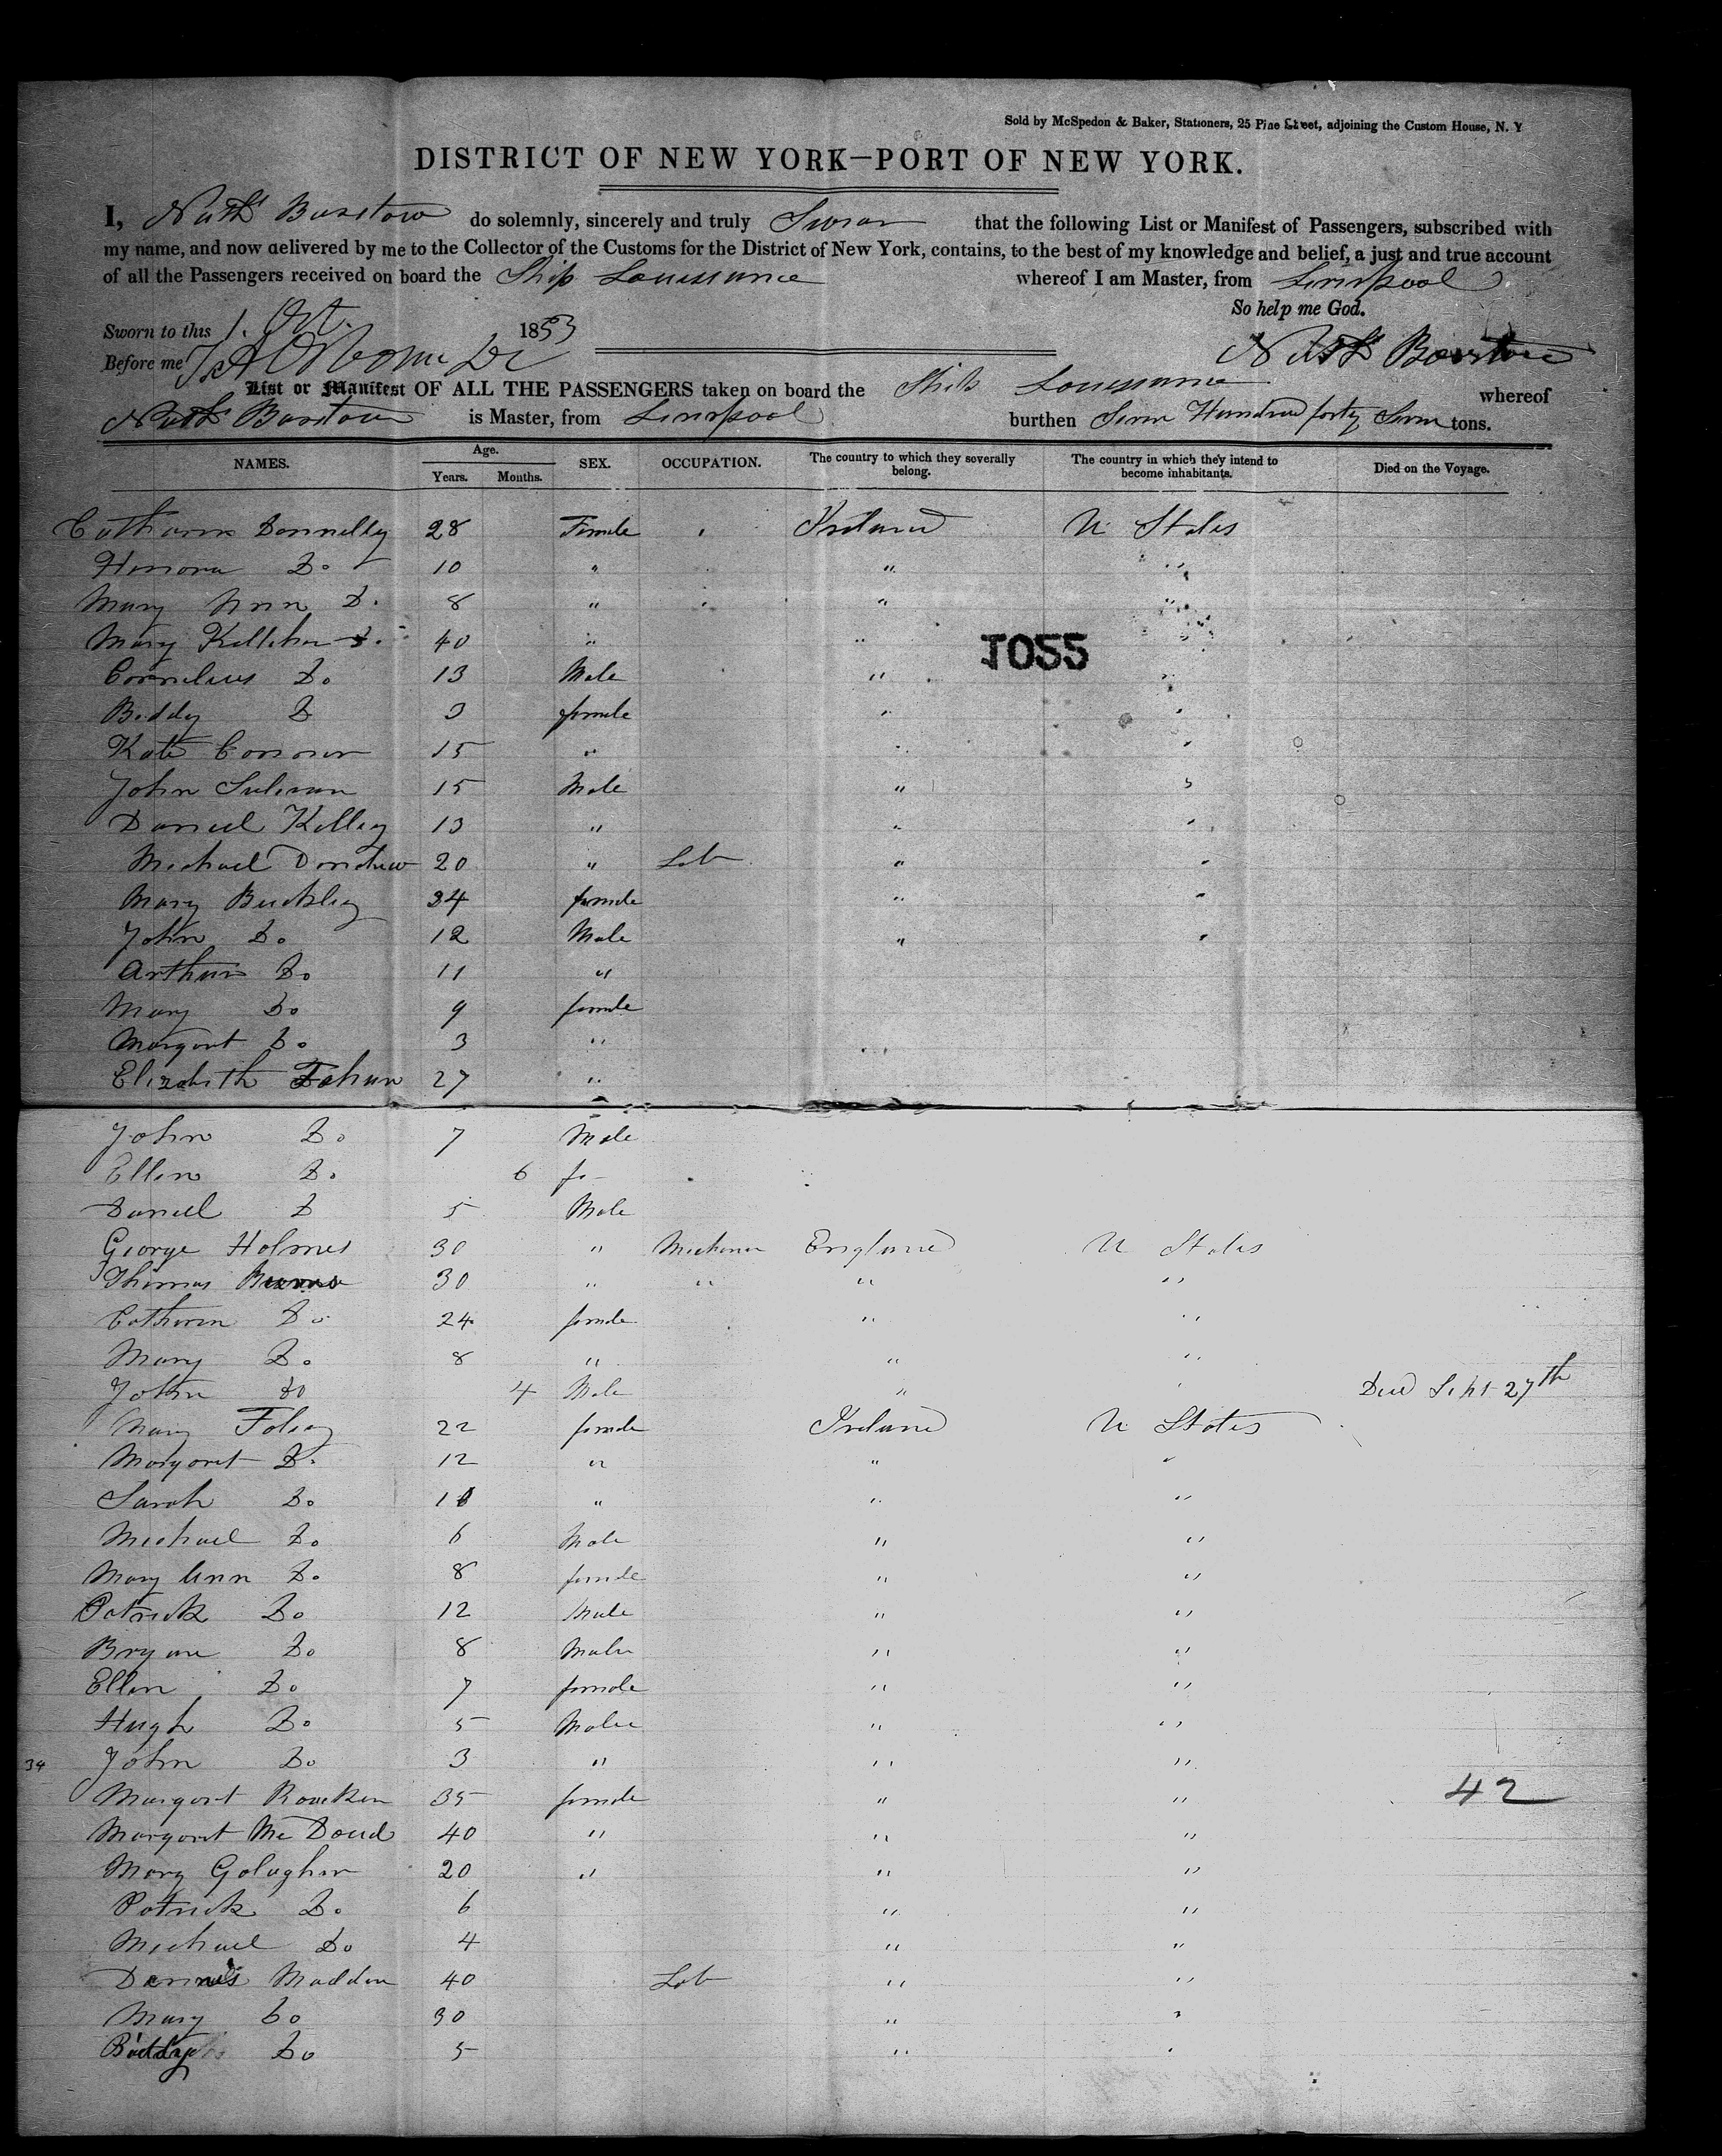 Sold by McSpedon & Baker, Stationers, 25 Pine Street, adjoining the Custom House, N. Y
DISTRICT OF NEW YORK—PORT OF NEW YORK.
I, Nathl Barstow do solemnly, sincerely and truly Swear that the following List or Manifest of Passengers, subscribed with
my name, and now delivered by me to the Collector of the Customs for the District of New York, contains, to the best of my knowledge and belief, a just and true account
of all the Passengers received on board the Ship Louisiana whereof I am Master, from Liverpool
So help me God.
Sworn to this 1. Oct. 1853
Before me Nathl Barstow
List or Manifest OF ALL THE PASSENGERS taken on board the Ship Louisiana whereof
Nathl Barstow is Master, from Liverpool burthen Seven Hundred forty Seven tons.
NAMES. Age. Years. Months. SEX. OCCUPATION. The country to which they severally belong. The country in which they intend to become inhabitants. Died on the Voyage.
Catharine Donnelley 28 Female Ireland U States
Honora Do 10 " " "
Mary Ann D. 8 " " "
Mary Kelleher 40 " " "
1055
Cornelius Do 13 Male " "
Biddy D 3 female " "
Kate Connor 15 " " "
John Sulivan 15 Male " "
Daniel Kelley 13 " " "
Michael Donahew 20 " Lab " "
Mary Buckley 34 female " "
John Do 12 Male " "
Arthur Do 11 "
Mary Do 9 female
Margaret Do 3 "
Elizabeth Fahan 27 "
John Do 7 Male
Ellen Do 6 fe-
Daniel D 5 Male
George Holmes 30 " Mechanic England U States
Thomas 30 " " " "
Catharin Do 24 female " "
Mary Do 8 " " "
John Do 4 Male " " Died Sept 27th
Mary Foley 22 female Ireland U States
Margaret D. 12 " " "
Sarah Do " " "
Michael Do 6 Male " "
Mary Ann Do 8 female " "
Patrick Do 12 Male " "
Bryan Do 8 Male " "
Ellen Do 7 female " "
Hugh Do 5 Male " "
34 John Do 3 " " "
Margaret 35 female " " 42
Margaret 40 " " "
Mary Golaghar 20 " " "
Patrick Do 6 " "
Michael Do 4 " "
Dennis Madden 40 Lab " "
Mary Do 30 " "
Biddy Do 5 " "